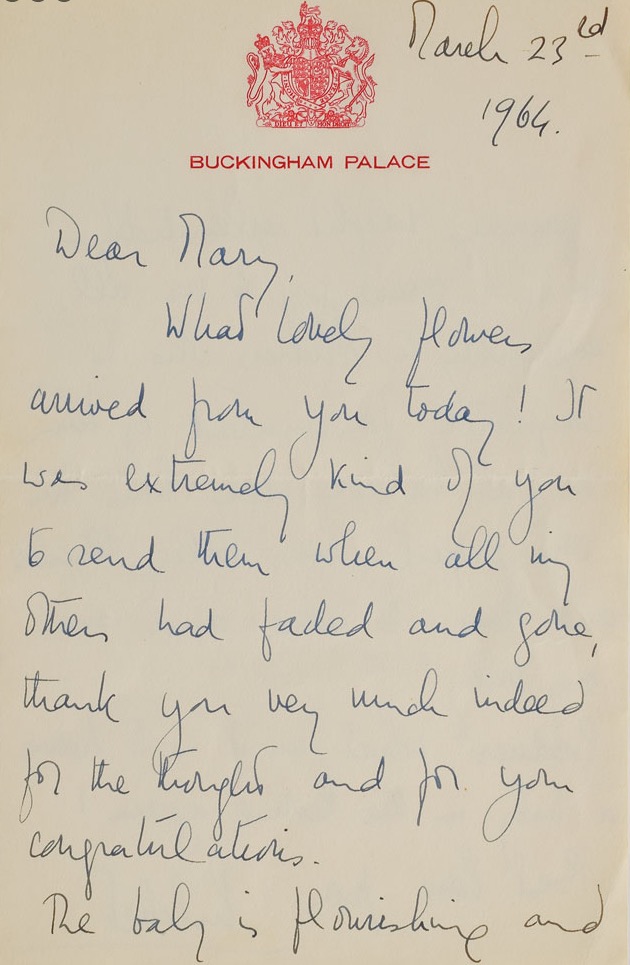 March 23rd
1964.
DIEU ET MON DROIT
BUCKINGHAM PALACE
Dear Mary,
What lovely flowers
arrived from you today! It
was extremely kind of you
to send them when all my
others had faded and gone,
thank you very much indeed
for the thought and for your
congratulations.
The baby is flourishing and